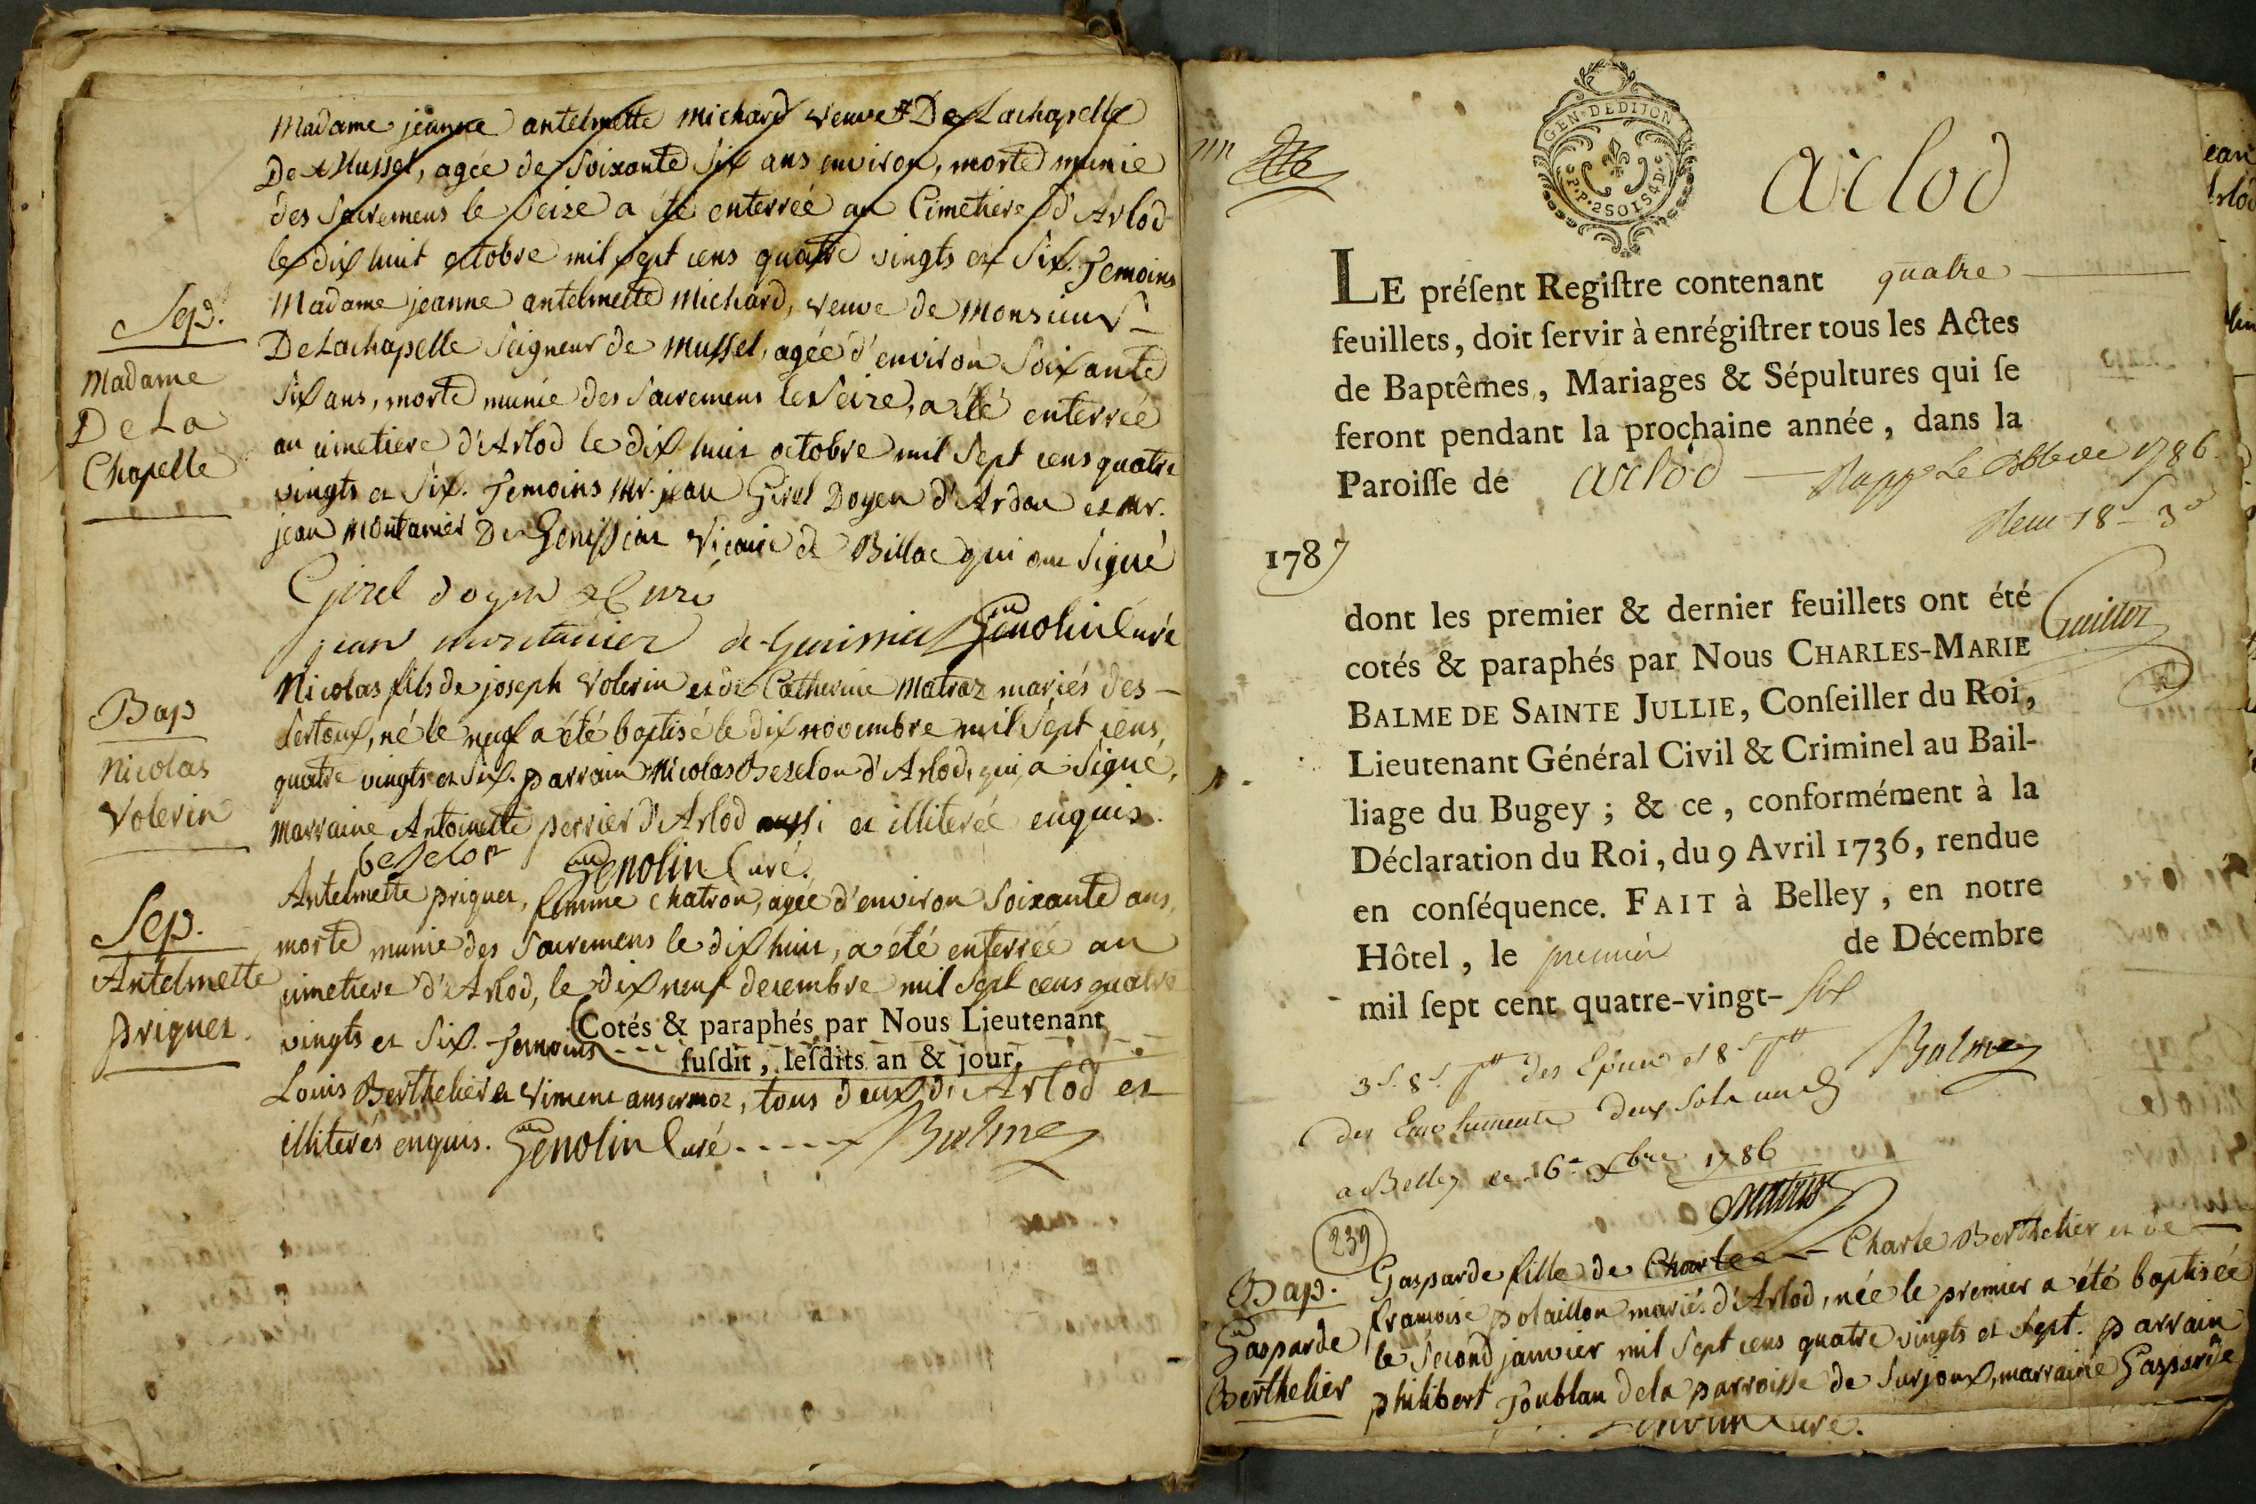 Madame jeanne antelmette Michard veuve De Lachapelle
De Mussel, agée de Soixante Six ans environ, morte munie
des Sacremens le Seize a été enterréé au Cimetiere d'Arlod
le dix huit octobre mil Sept cens quatre vingts et Six. Temoins
Sep.
Madame
De La
Chapelle
Madame jeanne antelmette Michard, veuve de Monsieur
De Lachapelle Seigneur de Mussel, agée d'environ Soixante
Six ans, morte munie des Sacremens le Seize, a été enterréé
au cimetiere d'Arlod le dix huit octobre mil Sept cens quatre
vingts et Six. Temoins Mr. jean Girel Doyen d'Ardon et Mr.
jean Montanier De Genissiat Vicaire de Billac qui ont Signé
Girel doyen & Curé
jean montanier de Genissiat Genolin Curé
Bap
Nicolas
Volerin
Nicolas fils de joseph Volerin et de Catherine Matraz mariés des
Sertoux, né le neuf a été baptisé le dix novembre mil Sept cens,
quatre vingts et Six. parrain Nicolas Beselon d'Arlod, qui a Signé,
Marraine Antoinette perrier d'Arlod aussi et illiteréé enquis.
beselon Genolin Curé.
Sep.
Antelmette
priquet.
Antelmette priquet, femme Chatron, agée d'environ Soixante ans,
morte munie des Sacremens le dix huit, a été enterréé au
cimetiere d'Arlod, le dix neuf decembre mil Sept cens quatre
vingts et Six. Temoins
Cotés & paraphés par Nous Lieutenant
susdit, lesdits an & jour,
Louis Berthelier et Viment ansermoz, tous deux d'Arlod et
illiterés enquis. Genolin Curé Balme
GEN·DEDIJON
P·P·2SOLS4D
arlod
LE présent Registre contenant quatre
feuillets, doit servir à enrégistrer tous les Actes
de Baptêmes, Mariages & Sépultures qui se
feront pendant la prochaine année, dans la
Paroisse de arlod
1786
18 s 3 d
1787
dont les premier & dernier feuillets ont été
cotés & paraphés par Nous CHARLES-MARIE
BALME DE SAINTE JULLIE, Conseiller du Roi,
Lieutenant Général Civil & Criminel au Bail-
liage du Bugey ; & ce, conformément à la
Déclaration du Roi, du 9 Avril 1736, rendue
en conséquence. FAIT à Belley, en notre
Hôtel, le premier de Décembre
mil sept cent quatre-vingt-six
Balme
des Emoluments deux sols un d
a Belley ce 6e Xbre 1786
239
Bap.
Gasparde
Berthelier
Gasparde fille de Charles Charle Berthelier et de
francoise polaillon mariés d'Arlod, née le premier a été baptiséé
le Second janvier mil Sept cens quatre vingts et Sept. parrain
philibert Joublan dela parroisse de Surjoux, marraine Gasparde
Genolin Curé.